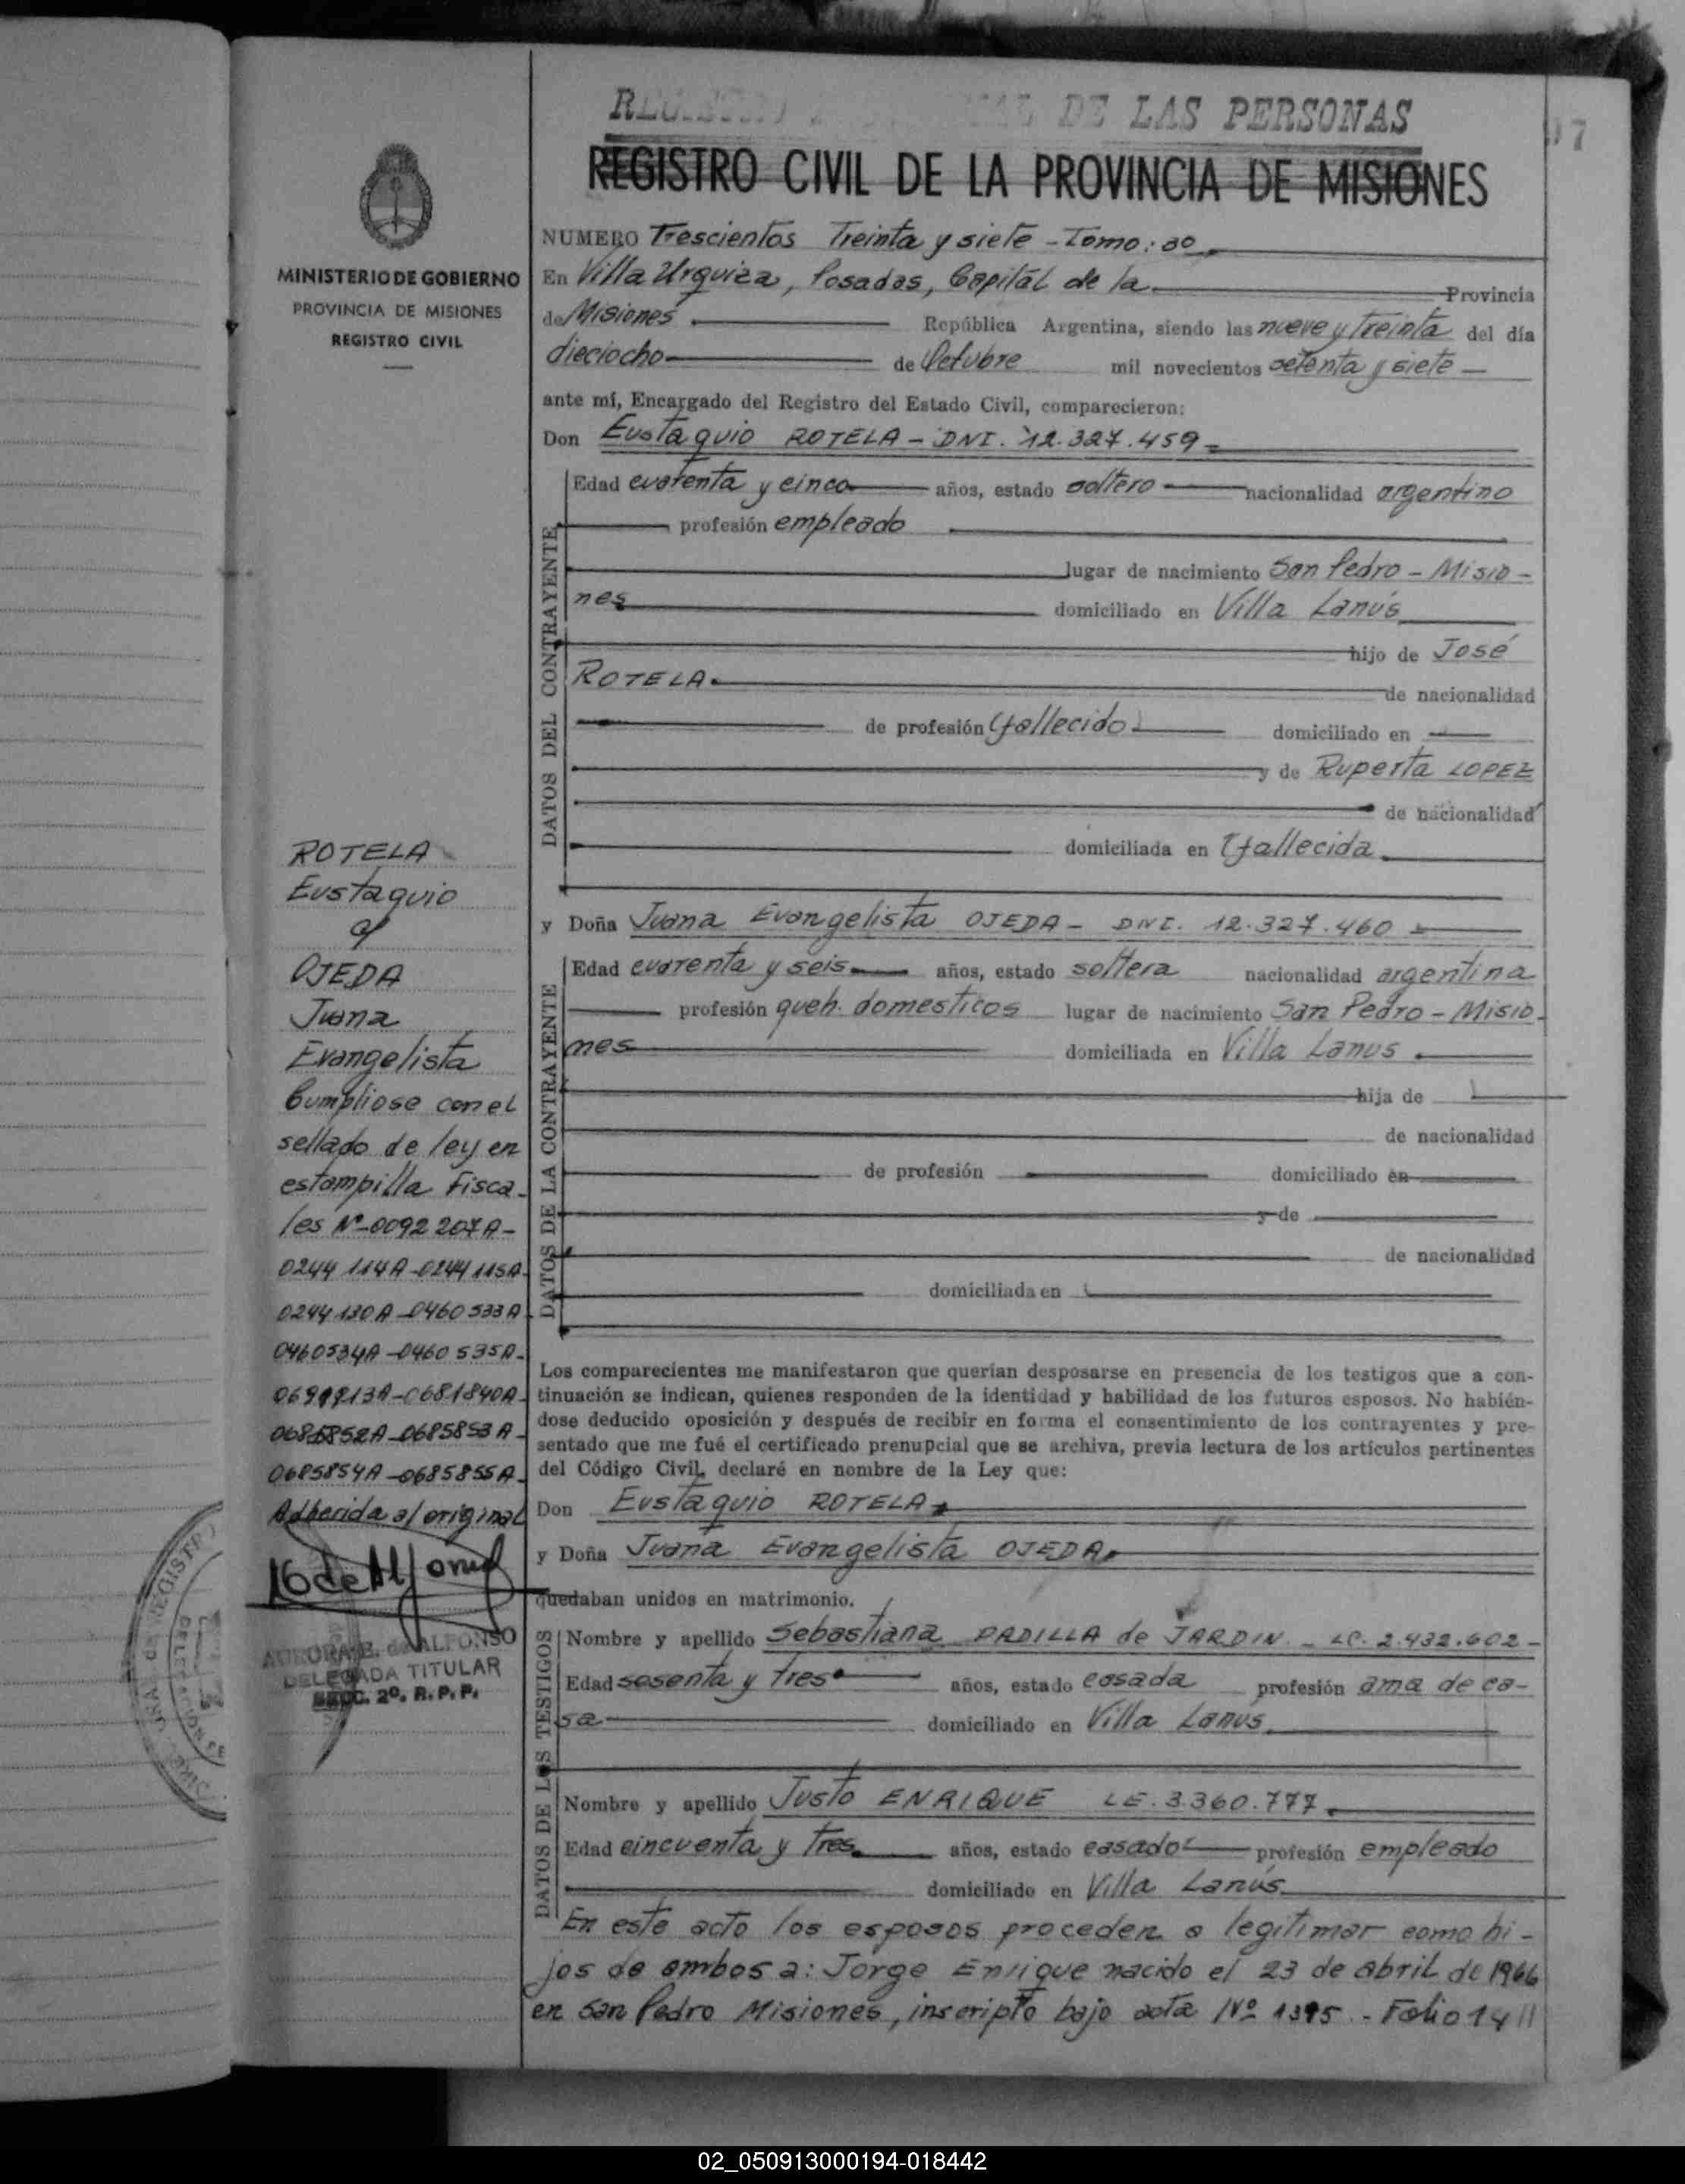 DE LAS PERSONAS
REGISTRO CIVIL DE LA PROVINCIA DE MISIONES
MINISTERIO DE GOBIERNO
PROVINCIA DE MISIONES
REGISTRO CIVIL
NUMERO Trescientos Treinta y siete - Tomo: 3º
En Villa Urquiza, Posadas, Capital de la Provincia
de Misiones República Argentina, siendo las nueve y treinta del día
dieciocho de Octubre mil novecientos setenta y siete
ante mí, Encargado del Registro del Estado Civil, comparecieron:
Don Eustaquio ROTELA - DNI. 12.327.459
DATOS DEL CONTRAYENTE
Edad cuarenta y cinco años, estado soltero nacionalidad argentino
profesión empleado
lugar de nacimiento San Pedro - Misio-
nes domiciliado en Villa Lanús
hijo de José
ROTELA de nacionalidad
de profesión (fallecido) domiciliado en
y de Ruperta LOPEZ
de nacionalidad
domiciliada en (fallecida
y Doña Juana Evangelista OJEDA - DNI. 12.327.460
DATOS DE LA CONTRAYENTE
Edad cuarenta y seis años, estado soltera nacionalidad argentina
profesión queh. domesticos lugar de nacimiento San Pedro - Misio-
nes domiciliada en Villa Lanus
hija de
de nacionalidad
de profesión domiciliado en
y de
de nacionalidad
domiciliada en
Los comparecientes me manifestaron que querían desposarse en presencia de los testigos que a con-
tinuación se indican, quienes responden de la identidad y habilidad de los futuros esposos. No habién-
dose deducido oposición y después de recibir en forma el consentimiento de los contrayentes y pre-
sentado que me fué el certificado prenupcial que se archiva, previa lectura de los artículos pertinentes
del Código Civil, declaré en nombre de la Ley que:
Don Eustaquio ROTELA
y Doña Juana Evangelista OJEDA
quedaban unidos en matrimonio.
DATOS DE LOS TESTIGOS
Nombre y apellido Sebastiana PADILLA de JARDIN - LC. 2.432.602 -
Edad sesenta y tres años, estado casada profesión ama de ca-
sa domiciliado en Villa Lanus
Nombre y apellido Justo ENRIQUE LE. 3.360.777
Edad cincuenta y tres años, estado casado profesión empleado
domiciliado en Villa Lanús
En este acto los esposos proceden a legitimar como hi-
jos de ambos a: Jorge Enrique nacido el 23 de abril de 1966
en San Pedro Misiones, inscripto bajo acta Nº 1395 - Folio 14 //
ROTELA
Eustaquio
c/
OJEDA
Juana
Evangelista
Cumpliose con el
sellado de ley en
estampilla Fisca-
les Nº 0092207A -
0244114A - 0244115A
0244130A - 0460533A
0460534A - 0460535A -
0681840A -
0685852A - 0685853A -
0685854A - 0685855A -
Adherida al original
AURORA B. de ALFONSO
DELEGADA TITULAR
SECC. 2º. R. P. P.
02_050913000194-018442